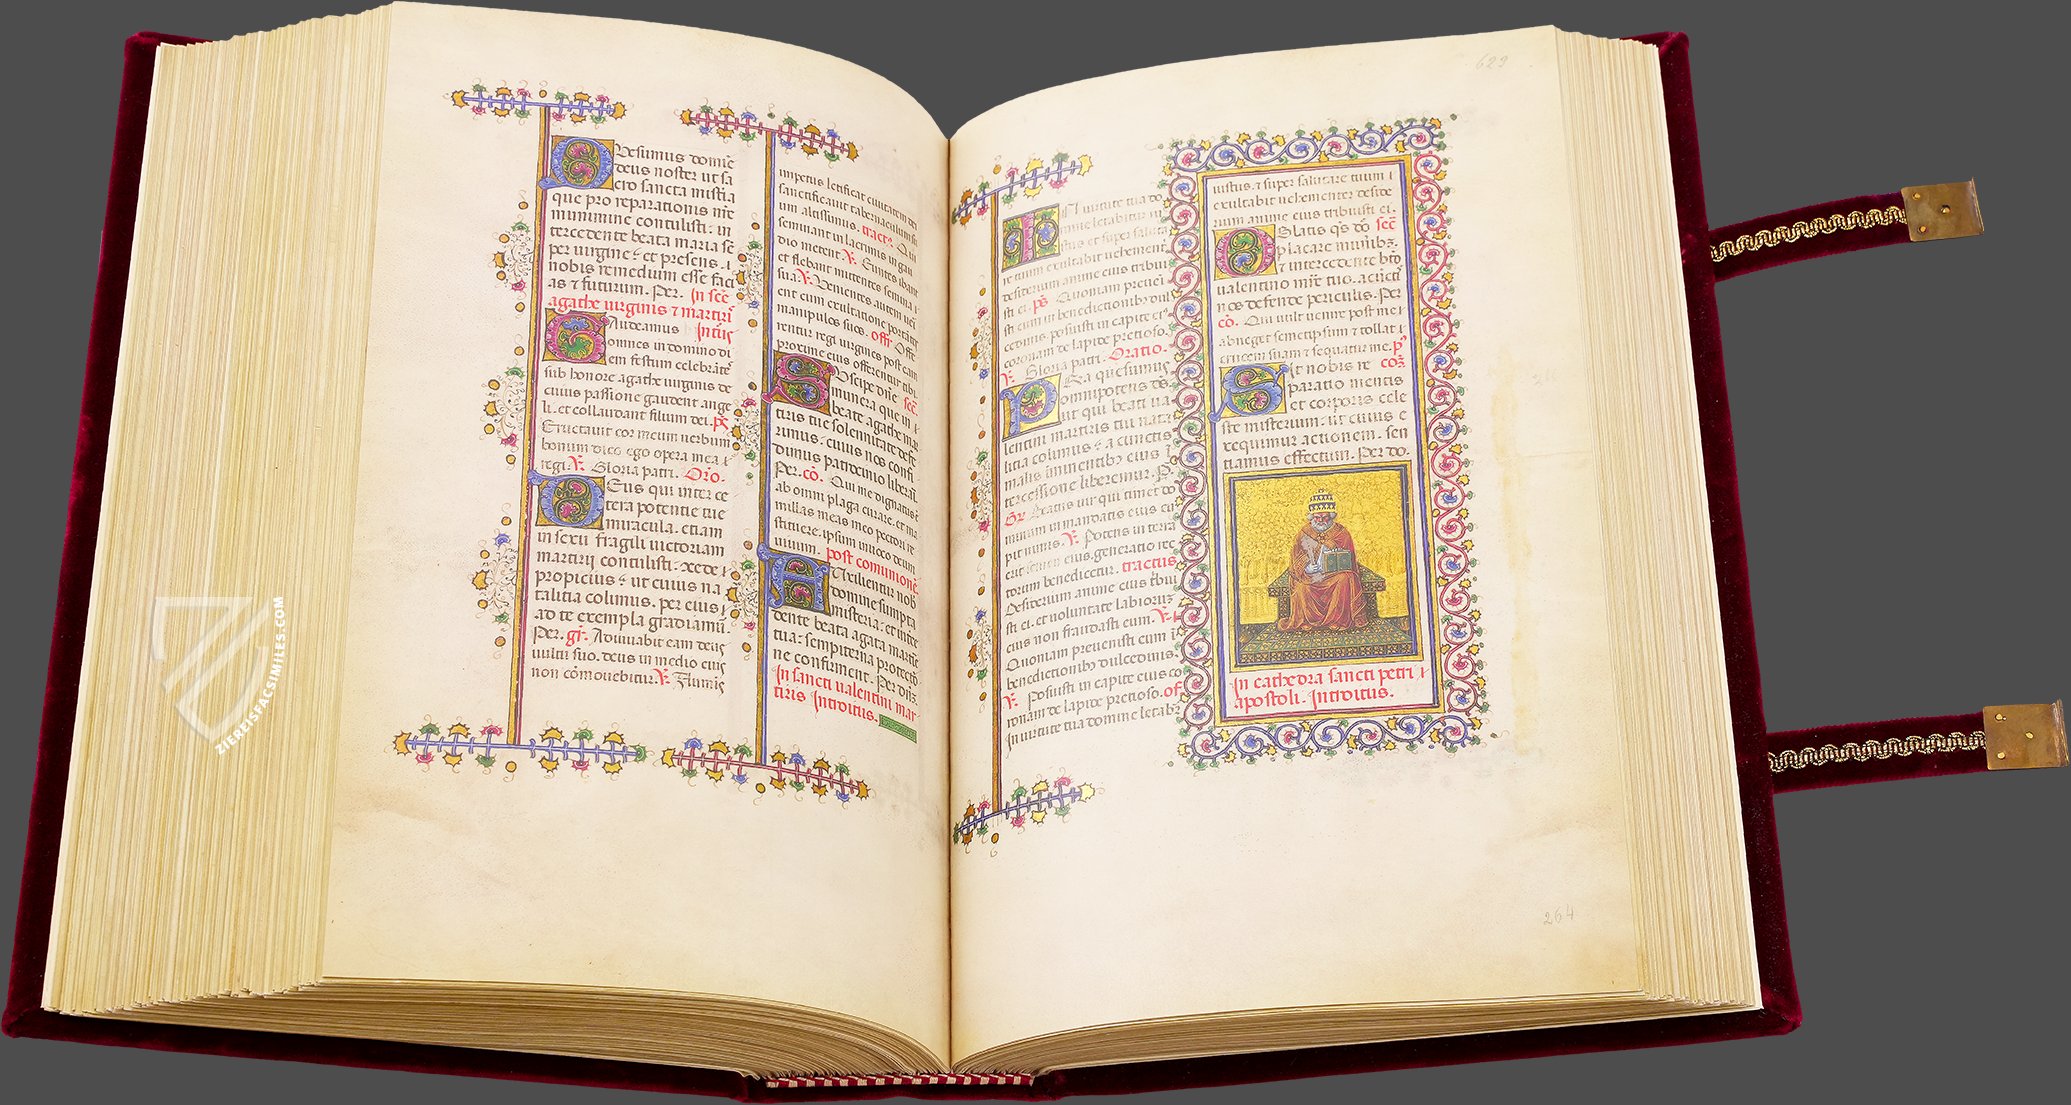 Quesumus domine
deus noster ut sa
cro sancta misteria
que pro reparationis nře
munimine contulisti: in
tercedente beata maria sē
per uirgine & et presens.
nobis remedium esse faci
as & futurum. Per. In scē
agathe uirginis & martiri
Gaudeamus Introitus
omnes in domino di
em festum celebrātes
sub honore agathe uirginis de
cuius passione gaudent ange
li. et collaudant filium dei. ps
Eructauit cor meum uerbum
bonum dico ego opera mea
regi. V. Gloria patri. Oro.
Deus qui inter ce
tera potentie tue
miracula. etiam
in sexu fragili uictoriam
martirij contulisti: xcede
propicius & ut cuius na
talitia colimus. per eius
ad te exempla gradiamur.
Per. gr. Adiuuabit eam deus
uultu suo. deus in medio eius
non cōmouebitur. V. Fluminis
impetus letificat ciuitatem dei
sanctificauit tabernaculum su
um altissimus. tractus. Qui
seminant in lacrimis in gau
dio metent. V. Euntes ibant
et flebant mittentes semina
sua. V. Venientes autem ueni
ent cum exultatione portātes
manipulos suos. offr. Offe
rentur regi uirgines post eam
proxime eius offerentur tibi.
Suscipe dn̄e scē
munera que in
beate agathe mar
tiris tue solennitate defe
rimus. cuius nos confi
dimus patrocinio liberari.
Per. cō. Qui me dignatus ē
ab omni plaga curare. et ma
millas meas meo pectori re
stituere. ipsum inuoco deum
uiuum. post comunionē
Auxilientur nob
domine sumpta
misteria: et interce
dente beata agata martire
tua: sempiterna protectio
ne confirment. Per dn̄z.
In sancti ualentini mar
tiris Introitus.
623
In uirtute tua do
mine letabitur iu
stus et super saluta
re tuum exultabit uehementer
desiderium anime eius tribui
sti ei. ps. Quoniam preueni
sti eum in benedictionibz dul
cedinis. posuisti in capite eius
coronam de lapide pretioso.
V. Gloria patri. Oratio.
Presta quesumus
omnipotens ds
ut qui beati ua
lentini martiris tui nata
litia colimus & a cunctis
malis iminentibz eius i
tercessione liberemur. P.
Gr. Beatus uir qui timet do
minum in mandatis eius cu
pit nimis. V. Potens in terra
erit semen eius. generatio rec
torum benedicetur. tractus
Desiderium anime eius tribui
sti ei. et uoluntate labiorum
eius non fraudasti eum. V.
Quoniam preuenisti eum i
benedictionibz dulcedinis.
V. Posuisti in capite eius co
ronam de lapide pretioso. of.
In uirtute tua domine letabitur
iustus. & super salutare tuum
exultabit uehementer deside
rium anime eius tribuisti ei.
Oblatis qs dō scē
placare munibz.
& intercedente bto
ualentino mre tuo. a cunctis
nos defende periculis. Per
cō. Qui uult uenire post me
abneget semetipsum & tollat
crucem suam & sequatur me. p
Sit nobis re coz
paratio mentis
et corporis cele
ste misterium. ut cuius e
xequimur actionem. sen
tiamus effectum. Per do.
In cathedra sancti petri
apostoli. Introitus.
264
ZIEREISFACSIMILES.COM